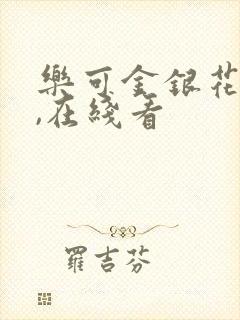 樂可金銀花
,在綫看
羅吉芬